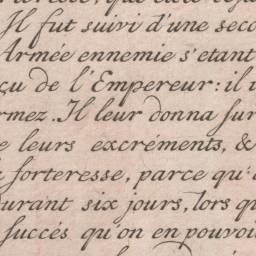 Il fut suivi d'une seco
Armée ennemie s'etant
çu de l'Empereur: il i
rmez. Il leur donna sur
e leurs excréments, &
a forteresse, parce qu'
durant six jours, lors qu
succés qu'on en pouvoi